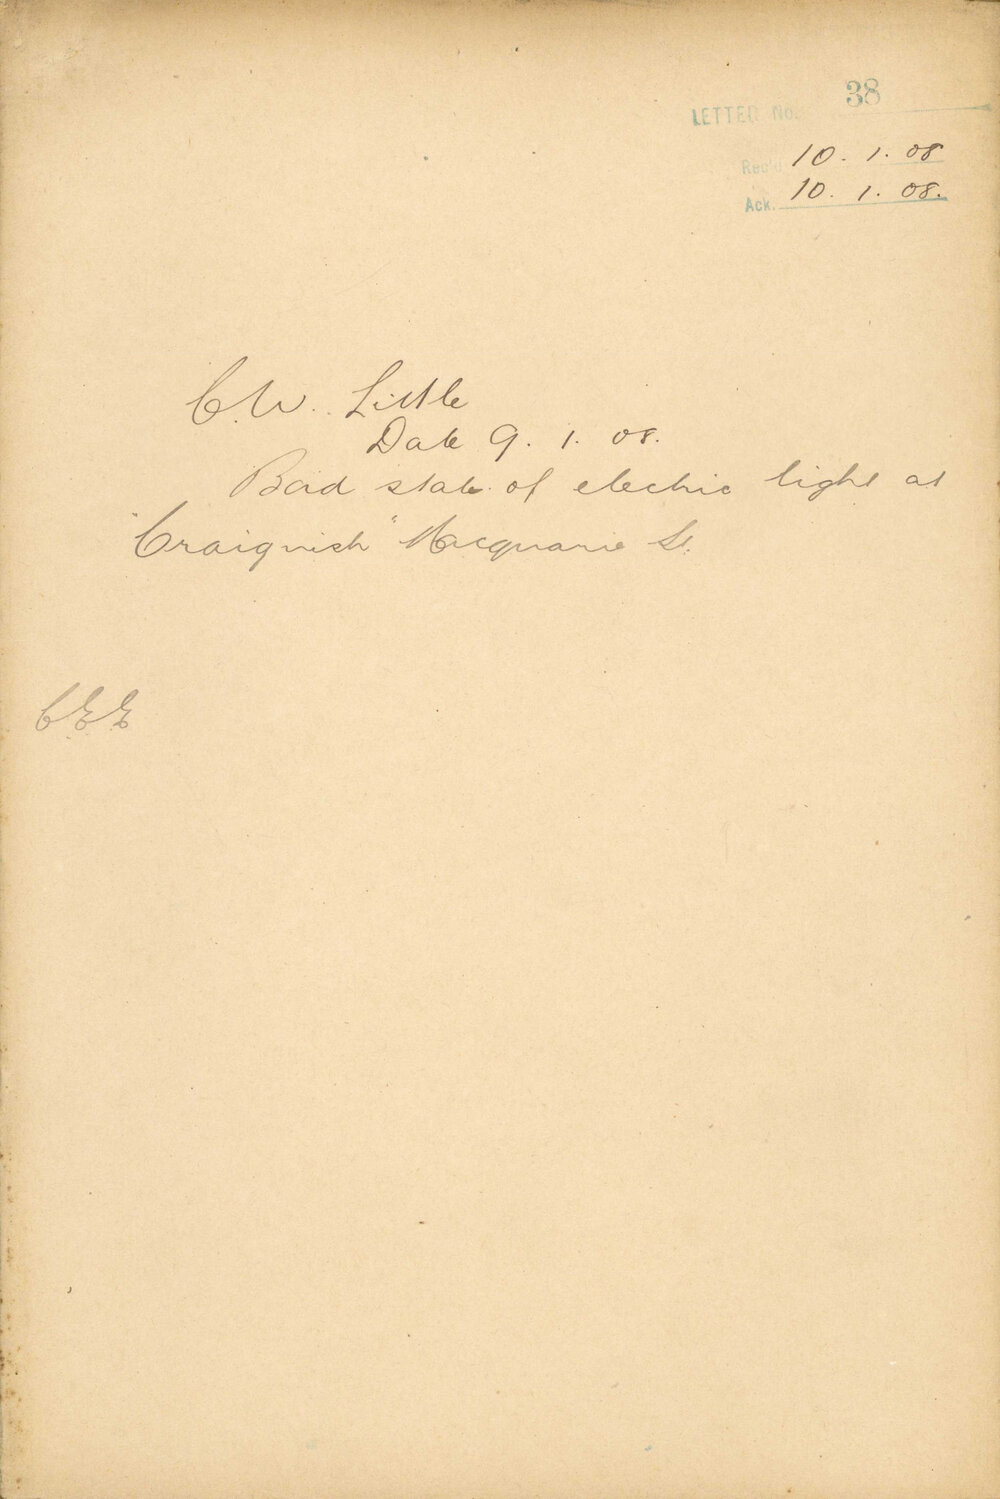 LETTER No. 38
Rec'd 10. 1. 08
Ack. 10. 1. 08.
C.W. Little
Date 9. 1. 08.
Bad state of electric light at
"Craignish" Macquarie St.
C.E.E